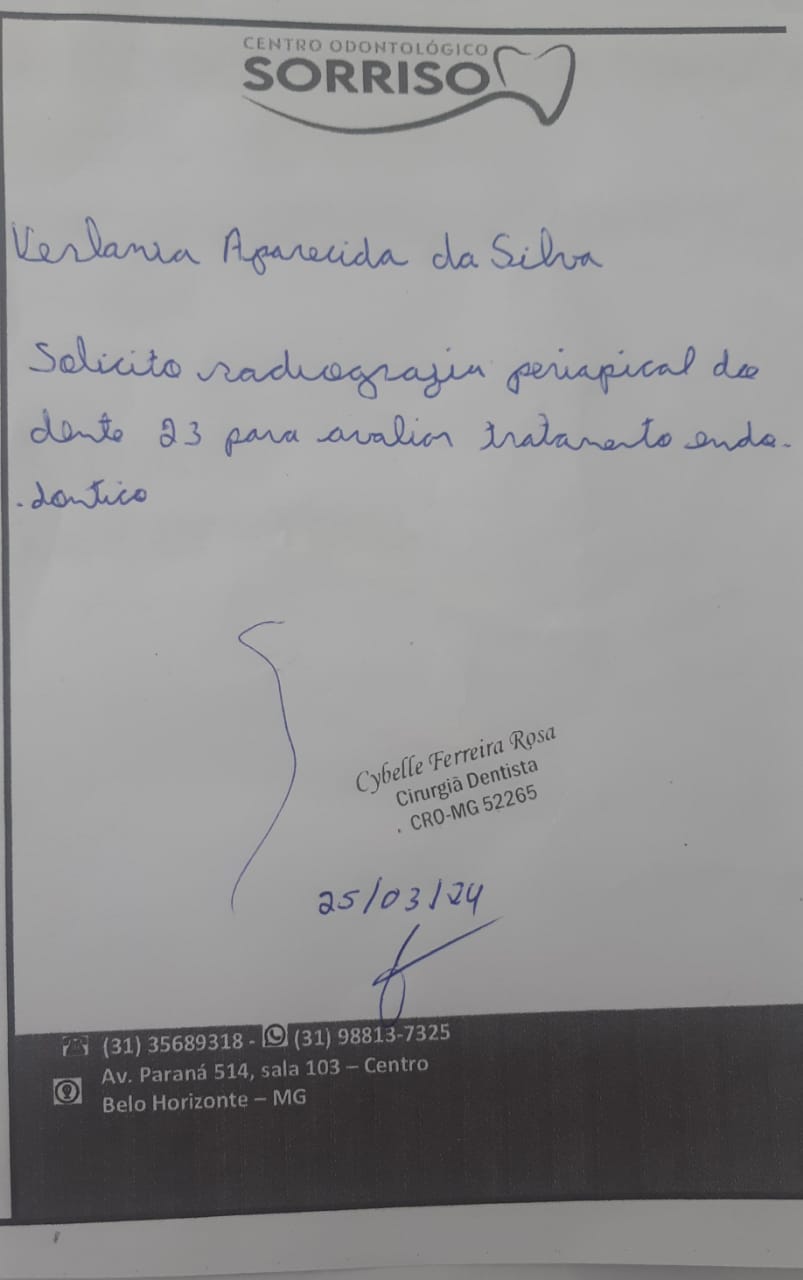 CENTRO ODONTOLÓGICO
SORRISO
Verlania Aparecida da Silva
Solicito radiografia periapical do
dente 23 para avaliar tratamento endo-
dontico
Cybelle Ferreira Rosa
Cirurgiã Dentista
CRO-MG 52265
25/03/24
(31) 35689318 - (31) 98813-7325
Av. Paraná 514, sala 103 – Centro
Belo Horizonte – MG